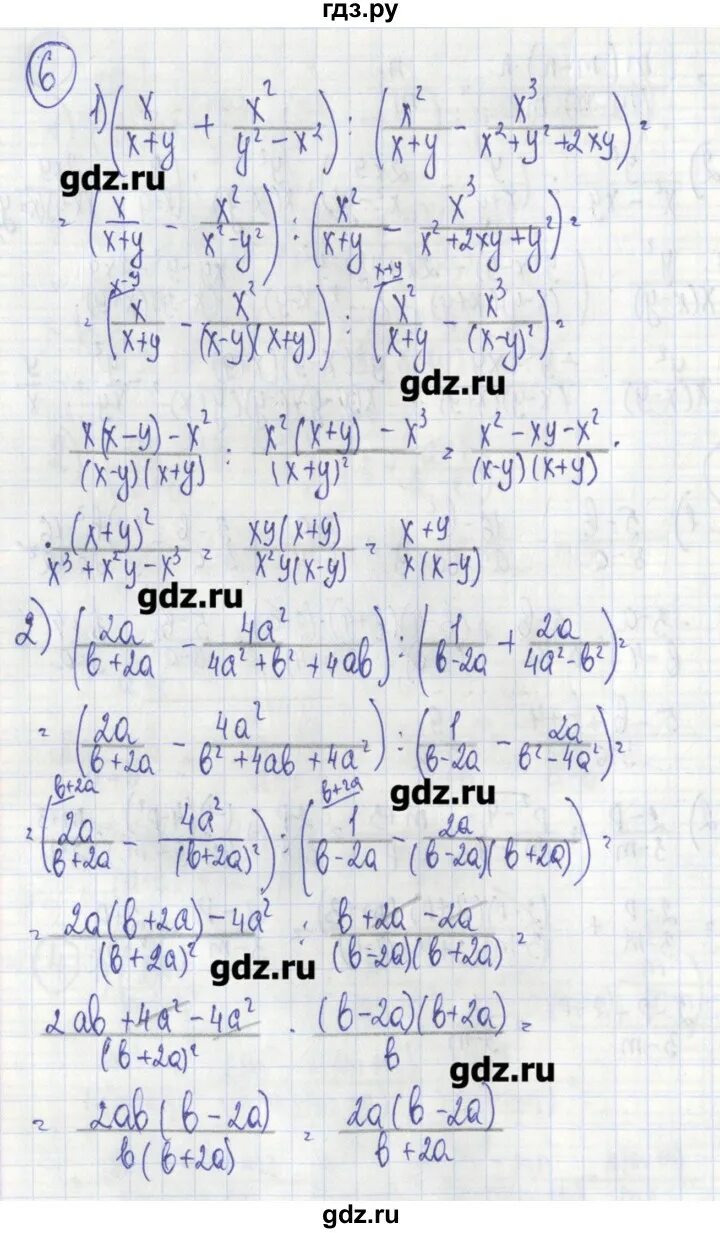 гдз.ру
6
1) (x/(x+y) + x²/(y²-x²)) : (x²/(x+y) - x³/(x²+y²+2xy)) =
gdz.ru
= (x/(x+y) - x²/(x²-y²)) : (x²/(x+y) - x³/(x²+2xy+y²)) =
x-y x+y
= (x/(x+y) - x²/((x-y)(x+y))) : (x²/(x+y) - x³/(x-y)²) =
gdz.ru
(x(x-y)-x²)/((x-y)(x+y)) : (x²(x+y)-x³)/(x+y)² = (x²-xy-x²)/((x-y)(x+y)) ·
· (x+y)²/(x³+x²y-x³) = xy(x+y)/(x²y(x-y)) = (x+y)/(x(x-y))
gdz.ru
2) (2a/(в+2a) - 4a²/(4a²+в²+4aв)) : (1/(в-2a) + 2a/(4a²-в²)) =
= (2a/(в+2a) - 4a²/(в²+4aв+4a²)) : (1/(в-2a) - 2a/(в²-4a²)) =
gdz.ru
в+2a в+2a
= (2a/(в+2a) - 4a²/(в+2a)²) : (1/(в-2a) - 2a/((в-2a)(в+2a))) =
= (2a(в+2a)-4a²)/(в+2a)² : (в+2a-2a)/((в-2a)(в+2a)) =
gdz.ru
(2aв+4a²-4a²)/(в+2a)² · (в-2a)(в+2a)/в =
gdz.ru
= 2aв(в-2a)/(в(в+2a)) = 2a(в-2a)/(в+2a)
gdz.ru